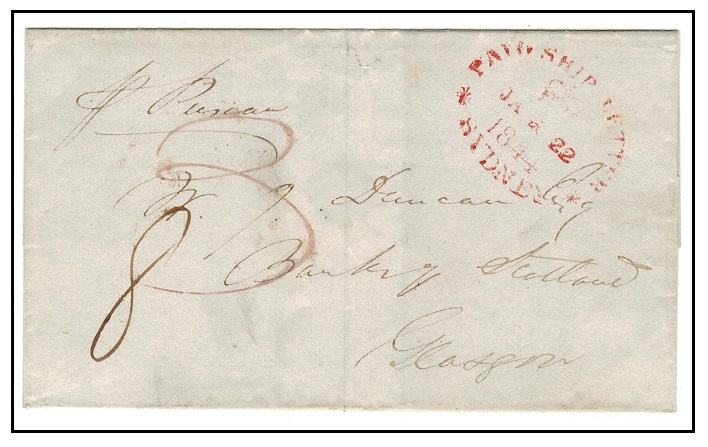 PAID SHIP LETTER
JA * 22
1844
* SYDNEY *
pr
3
W. Duncan Esq
8
Bank of Scotland
Glasgow